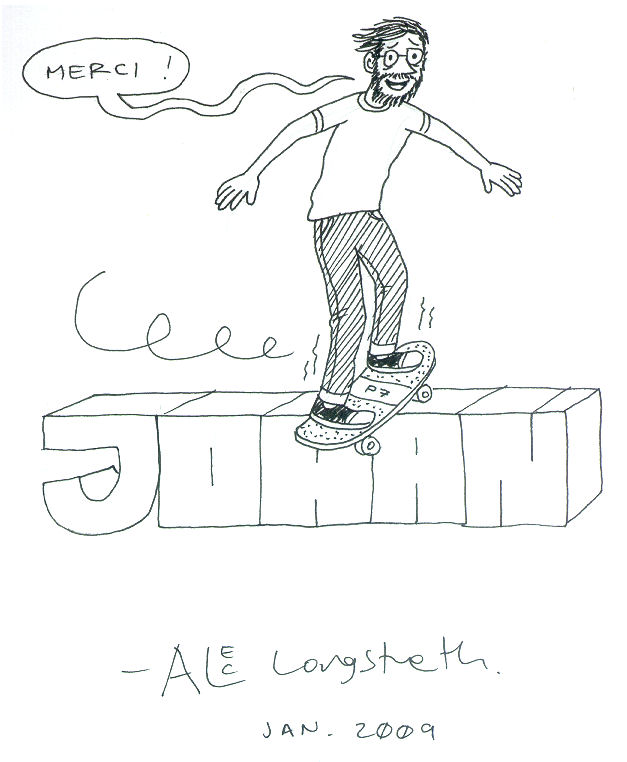 MERCI !
P7
JOHAN
- ALEC Longstreth.
JAN. 2009